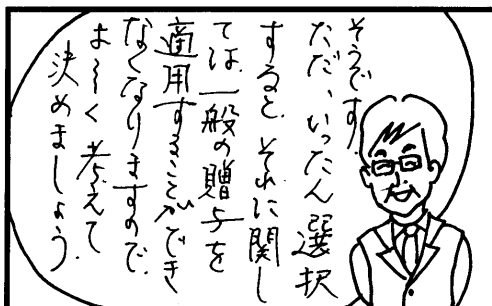 そうです
ただ、いったん選択
すると、それに関し
ては、一般の贈与を
適用することができ
なくなりますので、
よ〜く考えて
決めましょう。